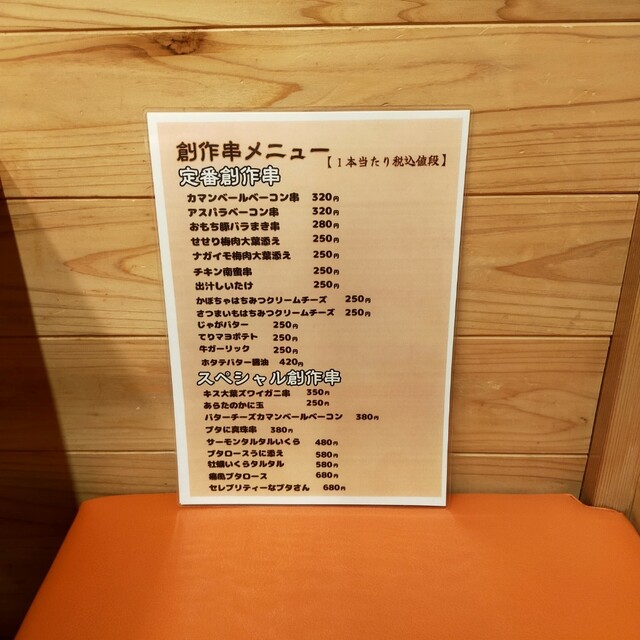 創作串メニュー
【1本当たり税込値段】
定番創作串
カマンベールベーコン串 320円
アスパラベーコン串 320円
おもち豚バラまき串 280円
せせり梅肉大葉添え 250円
ナガイモ梅肉大葉添え 250円
チキン南蛮串 250円
出汁しいたけ 250円
かぼちゃはちみつクリームチーズ 250円
さつまいもはちみつクリームチーズ 250円
じゃがバター 250円
てりマヨポテト 250円
牛ガーリック 250円
ホタテバター醤油 420円
スペシャル創作串
キス大葉ズワイガニ串 350円
あらたのかに玉 250円
バターチーズカマンベールベーコン 380円
ブタに真珠串 380円
サーモンタルタルいくら 480円
ブタロースうに添え 580円
牡蠣いくらタルタル 580円
痛風ブタロース 680円
セレブリティーなブタさん 680円